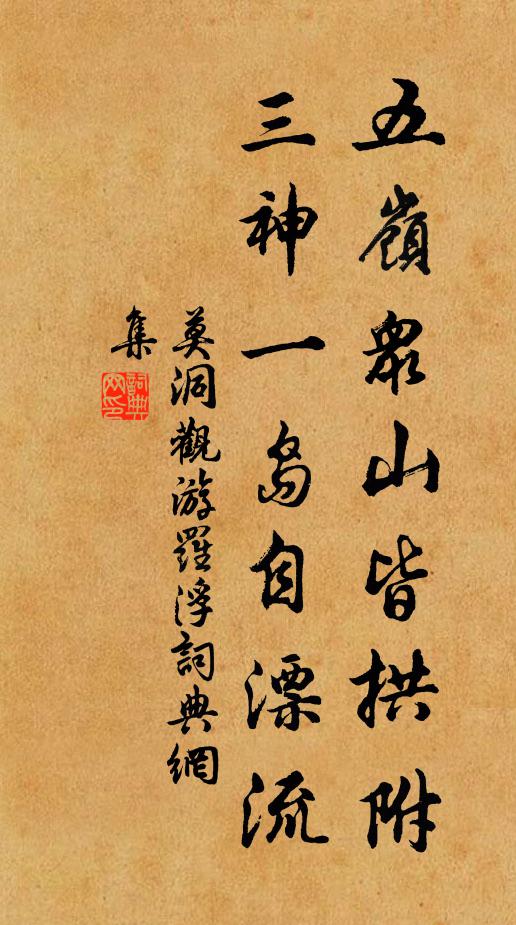 五嶺眾山皆拱附
三神一島自漂流
莫洞觀游羅浮詞典網
集
詞典网印